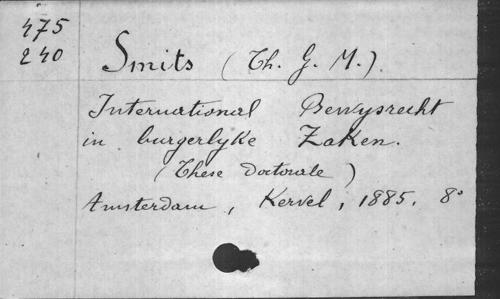 475
240
Smits (Th. G. M.)
International Bewysrecht
in burgerlyke Zaken.
(These doctorale)
Amsterdam, Kervel, 1885. 8°